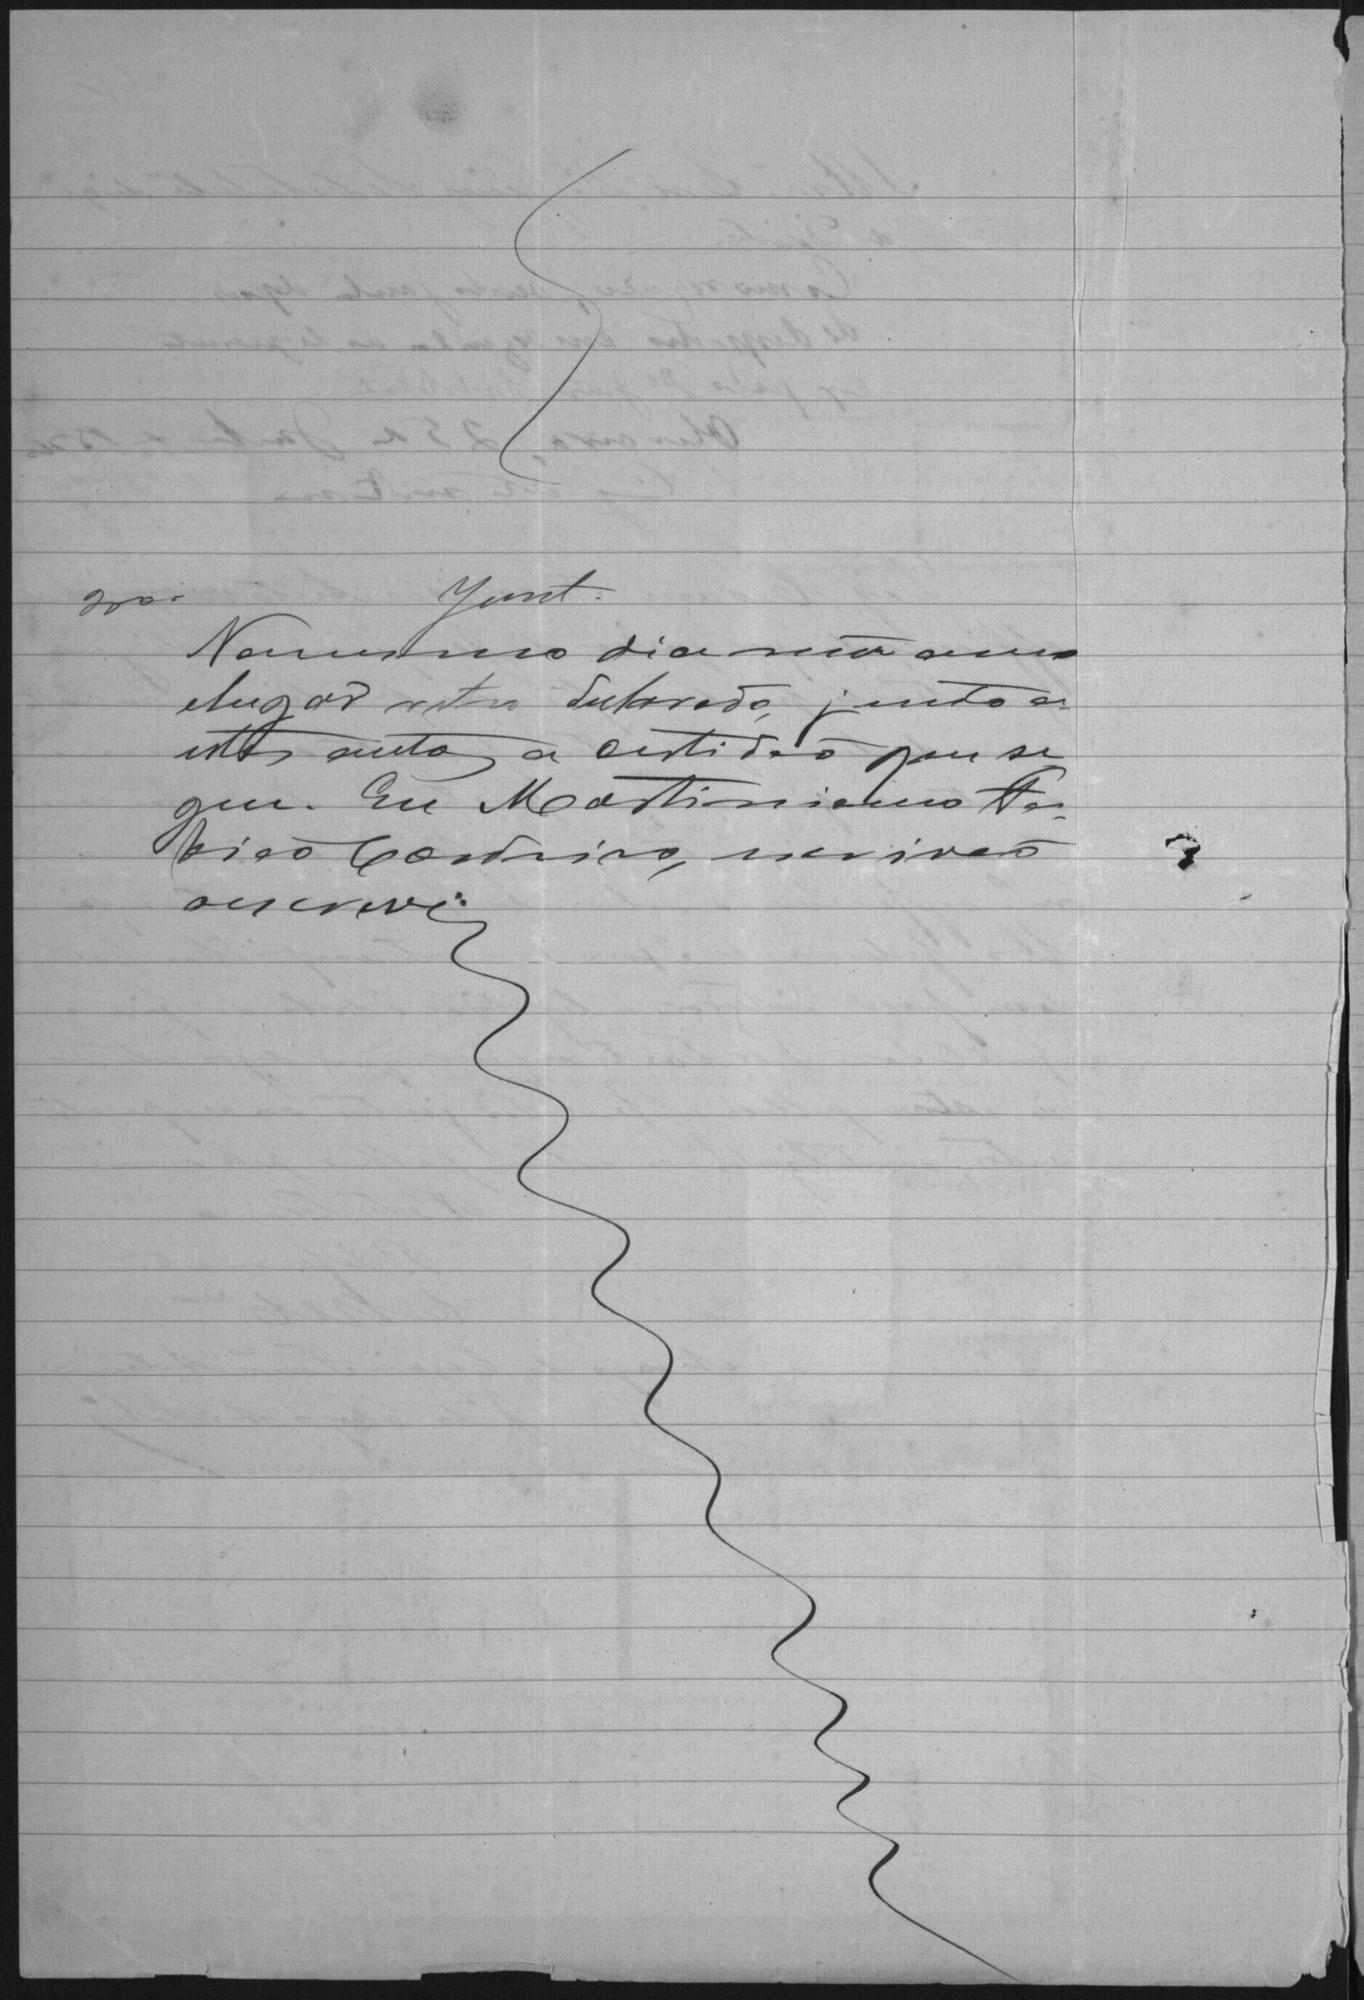 200
Junt.
No mesmo dia mês anno
e lugar retro declarado, junto a
estes autos a certidão que se
gue. Eu Martiniano Fa-
bião Cordeiro, escrivão
o escrevi.